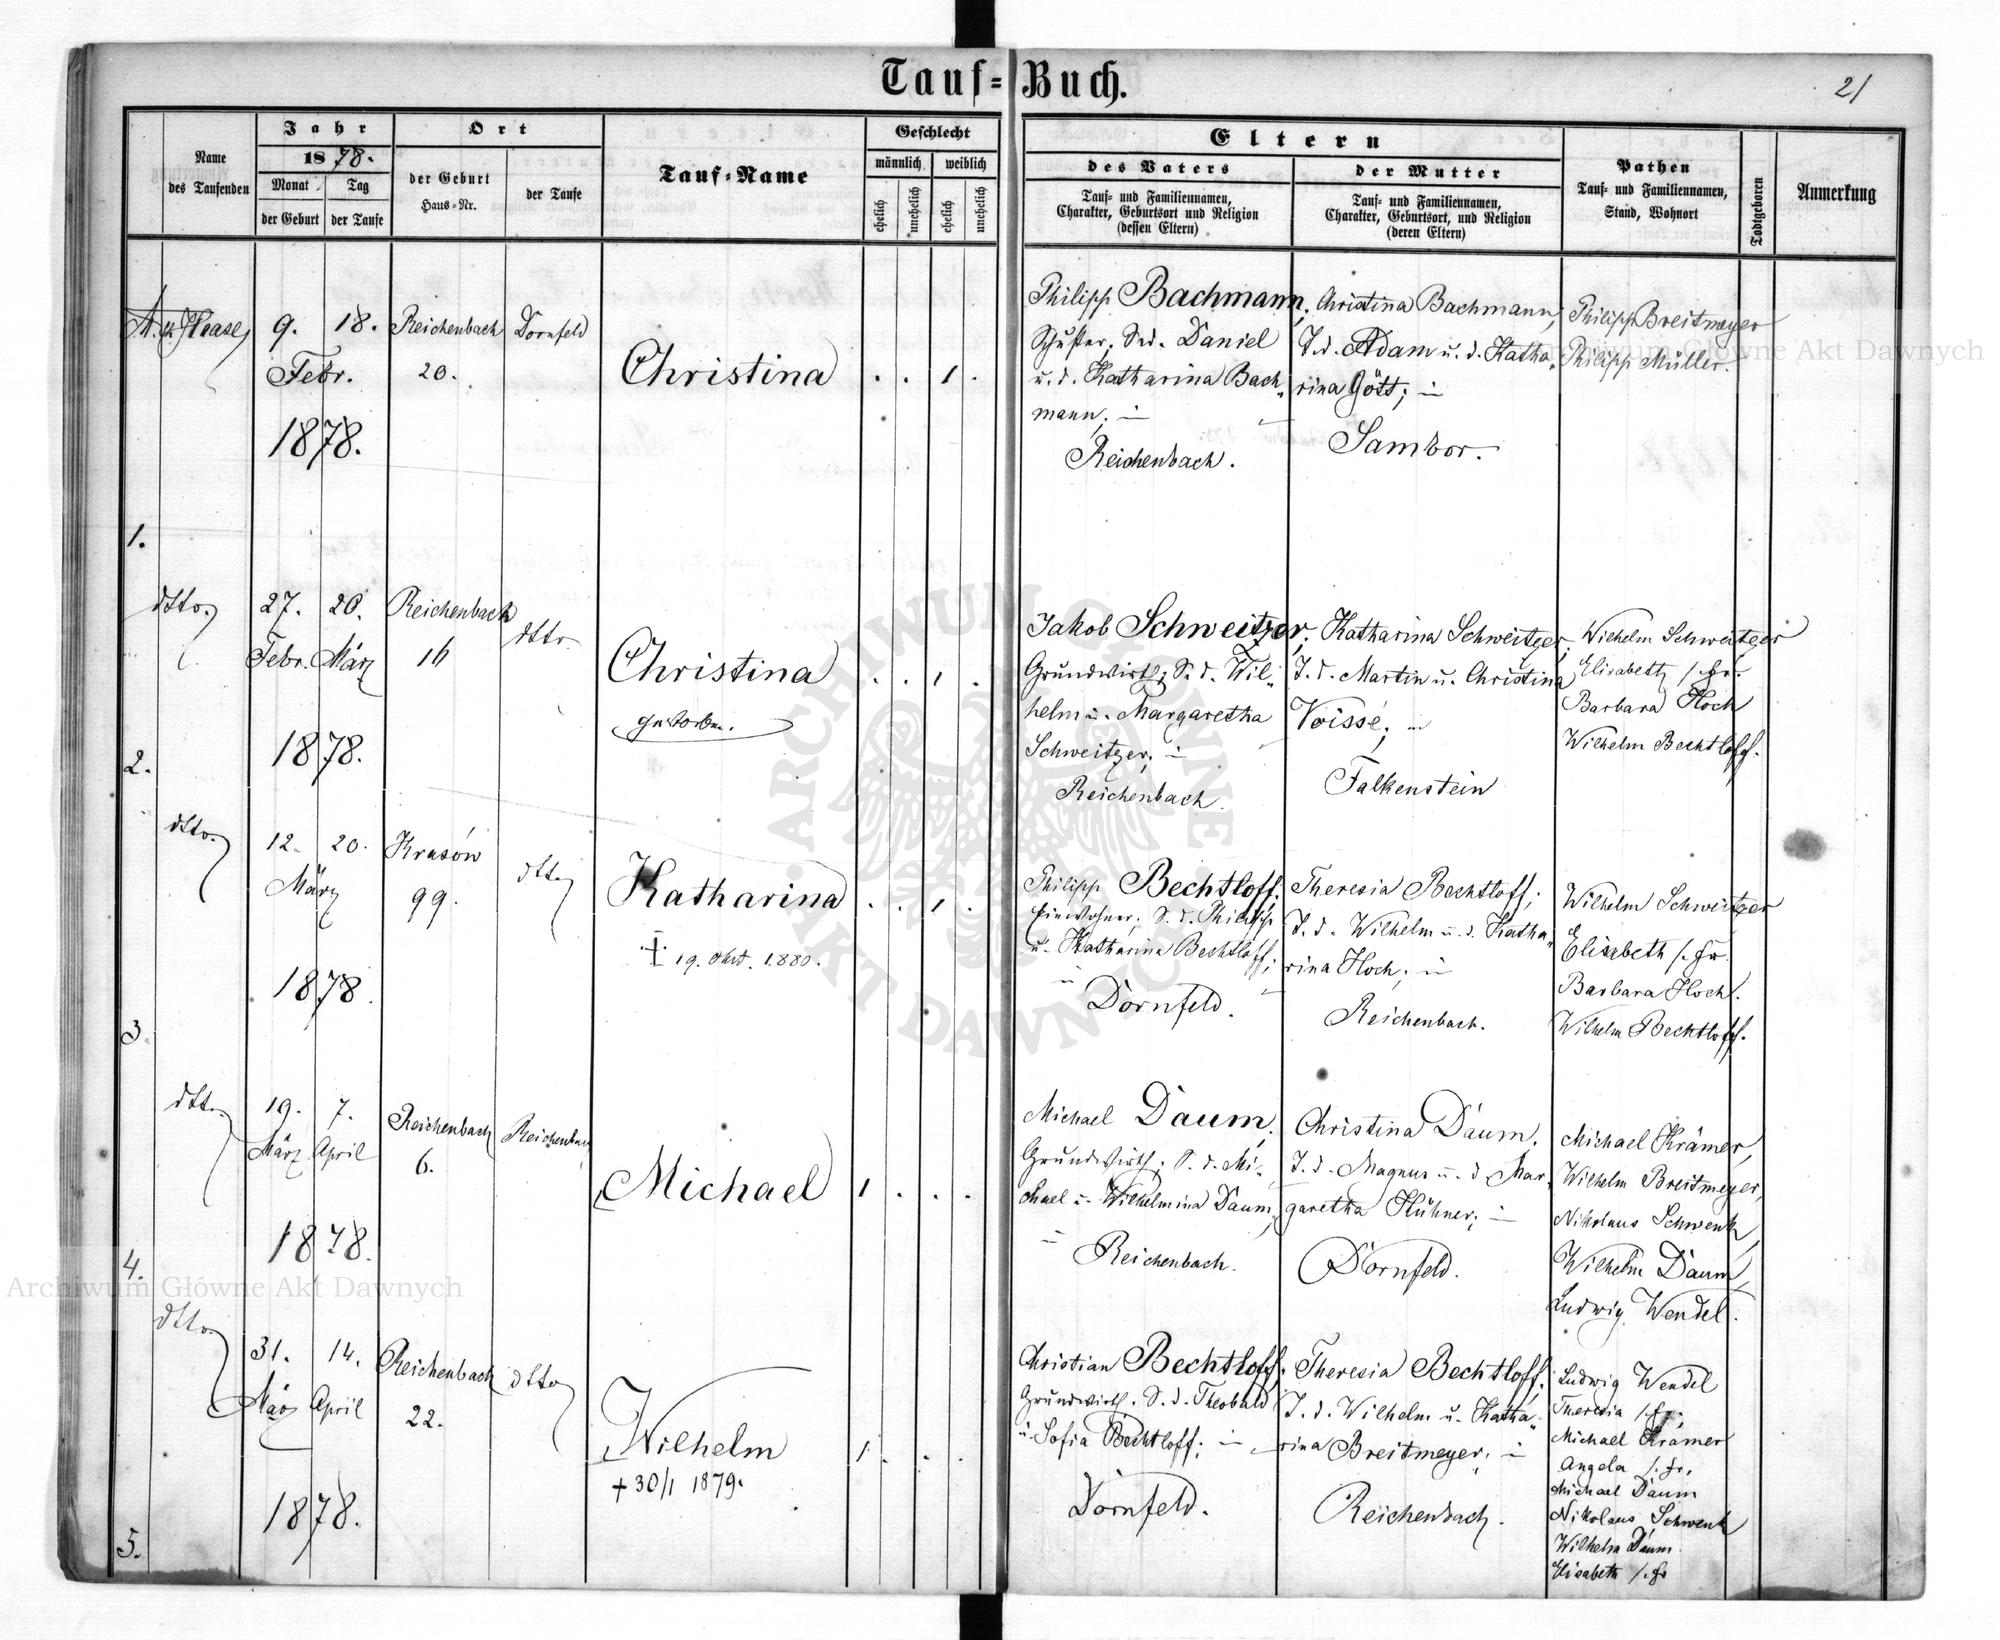 Tauf-Buch.
21
Name
des Taufenden
Jahr
1878.
Monat
der Geburt
Tag
der Taufe
Ort
der Geburt
Haus-Nr.
der Taufe
Tauf-Name
Geschlecht
männlich
weiblich
ehelich
unehelich
ehelich
unehelich
Eltern
des Vaters
Tauf- und Familiennamen,
Charakter, Geburtsort und Religion
(dessen Eltern)
der Mutter
Tauf- und Familiennamen,
Charakter, Geburtsort, und Religion
(deren Eltern)
Pathen
Tauf- und Familiennamen,
Stand, Wohnort
Todtgeboren
Anmerkung
1.
Haase
9.
Febr.
18.
1878.
Reichenbach
20.
Dornfeld
Christina
. . 1 .
Philipp Bachmann,
Schuster, S. d. Daniel
u. d. Katharina Bach-
mann; in
Reichenbach.
Christina Bachmann,
T. d. Adam u. d. Katha-
rina Gött; in
Sambor.
Philipp Breitmeyer
Philipp Müller.
2.
dtto.
27.
Febr.
20.
März
1878.
Reichenbach
16
dtto
Christina
gestorben.
. . 1 .
Jakob Schweitzer,
Grundwirth; S. d. Wil-
helm u. Margaretha
Schweitzer; in
Reichenbach.
Katharina Schweitzer;
T. d. Martin u. Christina
Voissé; in
Falkenstein
Wilhelm Schweitzer
Elisabeth s. Fr.
Barbara Hoch
Wilhelm Bechtloff.
3.
dtto.
12.
März
20.
1878.
Krasów
99.
dtto
Katharina
† 19. Okt. 1880.
. . 1 .
Philipp Bechtloff;
Einwohner; S. d. Philipp
u. Katharina Bechtloff;
in
Dornfeld.
Theresia Bechtloff;
T. d. Wilhelm u. d. Katha-
rina Hoch; in
Reichenbach.
Wilhelm Schweitzer
Elisabeth s. Fr.
Barbara Hoch.
Wilhelm Bechtloff.
4.
dtto
19.
März
7.
April
1878.
Reichenbach
6.
Reichenbach
Michael
1 . . .
Michael Daum,
Grundwirth; S. d. Mi-
chael u. Wilhelmina Daum,
in
Reichenbach.
Christina Daum,
T. d. Magnus u. d. Mar-
garetha Hühner; in
Dornfeld.
Michael Krämer,
Wilhelm Breitmeyer,
Nikolaus Schwenk,
Wilhelm Daum,
Ludwig Wendel.
5.
dtto
31.
März
14.
April
1878.
Reichenbach
22.
dtto
Wilhelm
+ 30/1 1879.
1 . .
Christian Bechtloff;
Grundwirth. S. d. Theobald
u. Sofia Bechtloff; in
Dornfeld.
Theresia Bechtloff;
T. d. Wilhelm u. Katha-
rina Breitmeyer; in
Reichenbach.
Ludwig Wendel
Theresia s. Fr.;
Michael Krämer
Angela s. Fr.
Michael Daum
Nikolaus Schwenk
Wilhelm Daum.
Elisabeth s. Fr
Archiwum Główne Akt Dawnych
Archiwum Główne Akt Dawnych
ARCHIWUM GŁÓWNE
AKT DAWNYCH